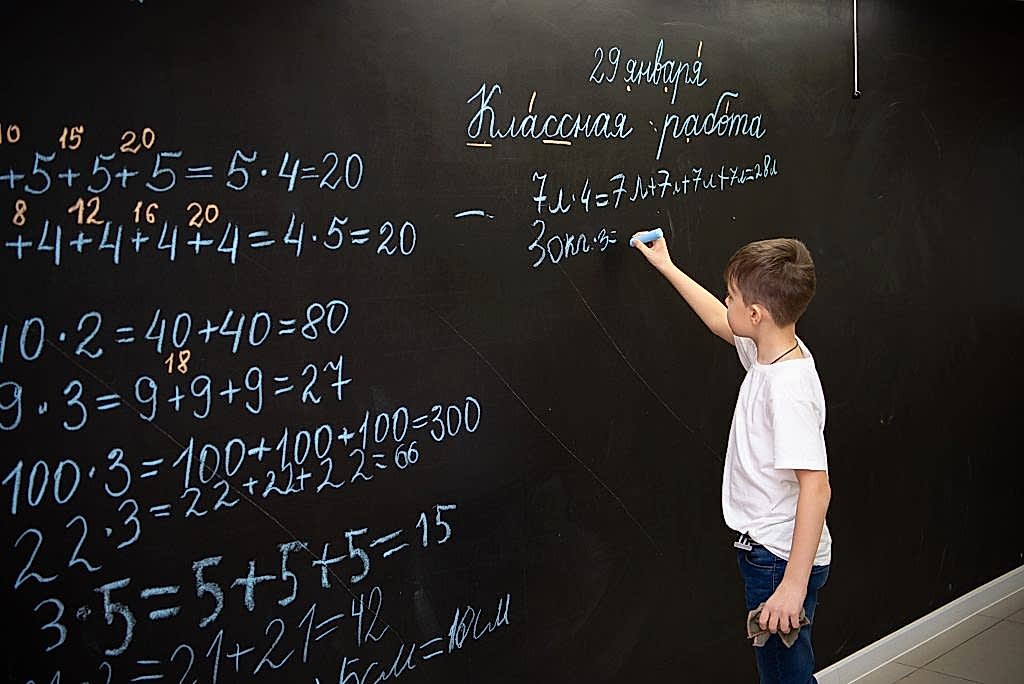 29 января
Классная работа
7л·4=7л+7л+7л+7л=28л
30кг·3=
10 15 20
+5+5+5=5·4=20
8 12 16 20
+4+4+4+4=4·5=20
10·2=40+40=80
18
9·3=9+9+9=27
100·3=100+100+100=300
22·3=22+22+22=66
3·5=5+5+5=15
=21+21=42
5см=10см